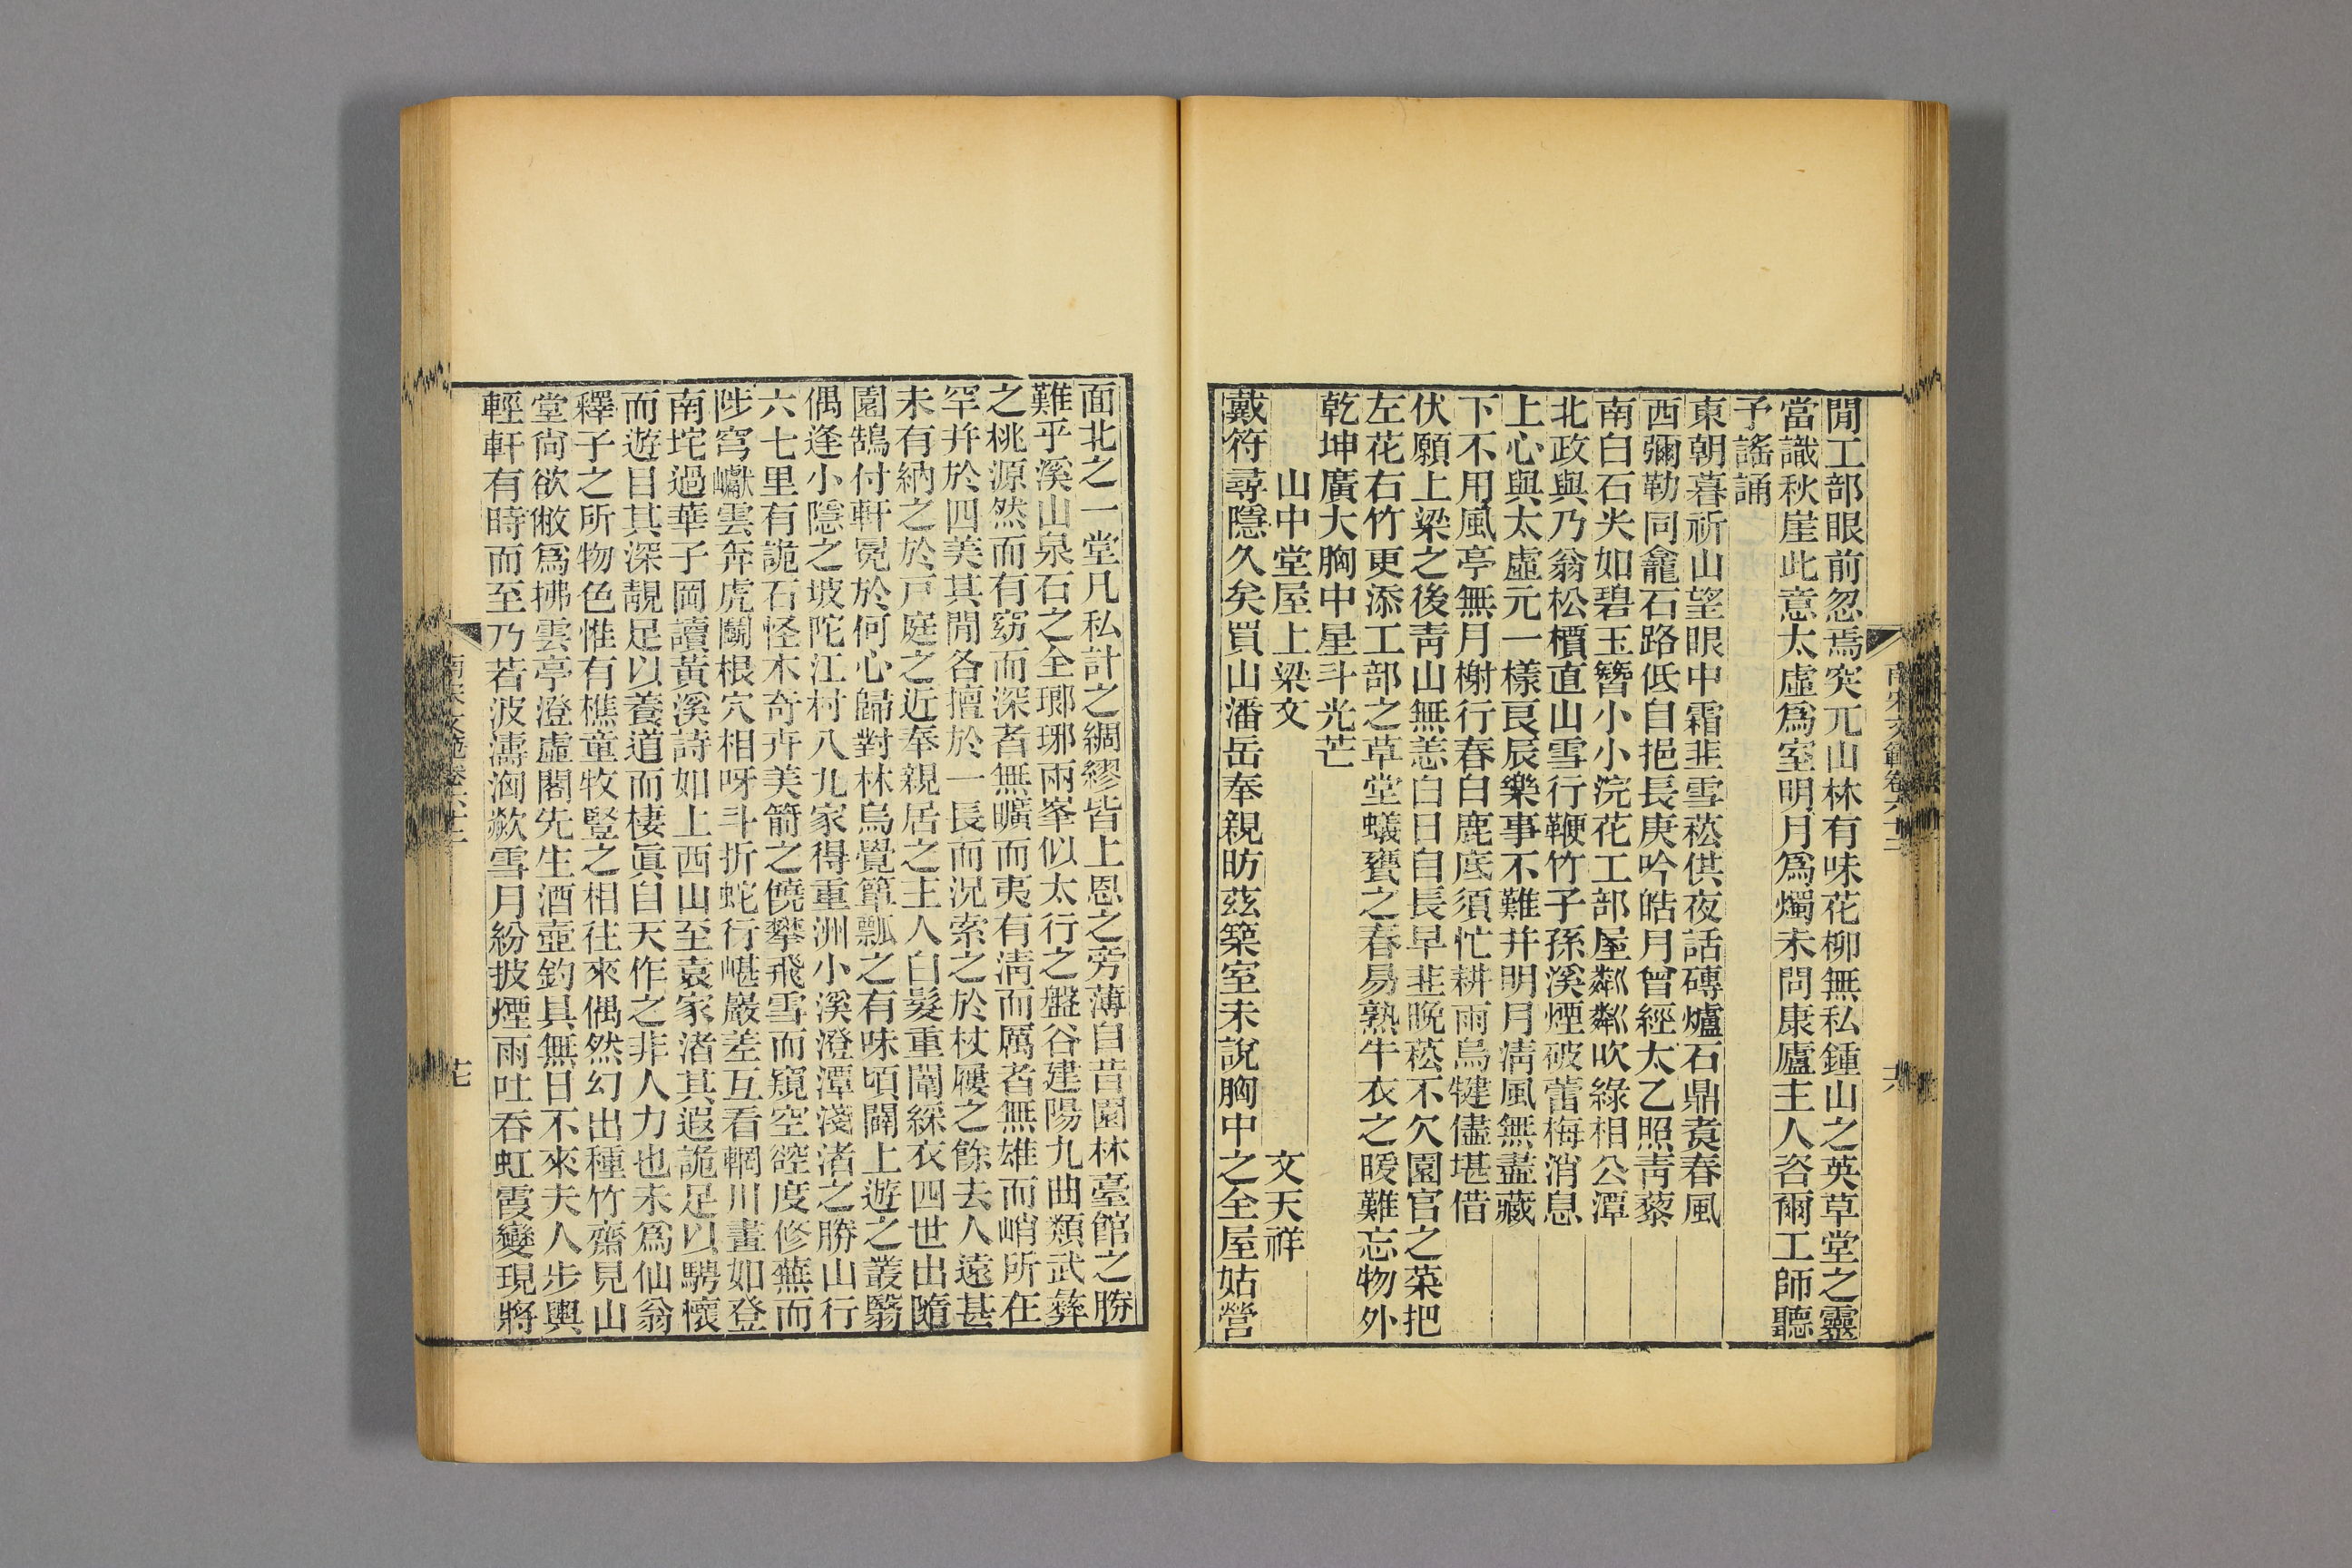 閒工部眼前忽焉突兀山林有味花柳無私鍾山之英草堂之靈
當識秋崖此意太虛爲室明月爲燭未問康廬主人咨爾工師聽
予謠誦
東朝暮祈山望眼中霜韭雪菘供夜話磚爐石鼎煑春風
西彌勒同龕石路低自挹長庚吟皓月曾經太乙照靑藜
南白石光如碧玉簪小小浣花工部屋粼粼吹綠相公潭
北政與乃翁松檟直山雪行鞭竹子孫溪煙破蕾梅消息
上心與太虛元一樣良辰樂事不難幷明月淸風無盡藏
下不用風亭無月榭行春白鹿底須忙耕雨烏犍儘堪借
伏願上梁之後靑山無恙白日自長早韭晚菘不欠園官之菜把
左花右竹更添工部之草堂蟻甕之春易熟牛衣之暖難忘物外
乾坤廣大胸中星斗光芒
山中堂屋上梁文 文天祥
戴符尋隱久矣買山潘岳奉親昉茲築室未說胸中之全屋姑營
南宋文範卷六十三 六
面北之一堂凡私計之綢繆皆上恩之旁薄自昔園林臺館之勝
難乎溪山泉石之全瑯琊兩峯似太行之盤谷建陽九曲類武彝
之桃源然而有窈而深者無曠而夷有淸而厲者無雄而峭所在
罕幷於四美其閒各擅於一長而況索之於杖屨之餘去人遠甚
未有納之於戸庭之近奉親居之主人白髮重闈綵衣四世出隨
園鵠付軒冕於何心歸對林烏覺簞瓢之有味頃闢上遊之叢翳
偶逢小隱之坡陀江村八九家得重洲小溪澄潭淺渚之勝山行
六七里有詭石怪木奇卉美箭之饒攀飛雪而窺空谾度修蕪而
陟穹巘雲奔虎鬬根穴相呀斗折蛇行嵁巖差互看輞川畫如登
南垞過華子岡讀黃溪詩如上西山至袁家渚其遐詭足以騁懷
而遊目其深靚足以養道而棲眞自天作之非人力也未爲仙翁
釋子之所物色惟有樵童牧豎之相往來偶然幻出種竹齋見山
堂尙欲敝爲拂雲亭澄虛閣先生酒壺釣具無日不來夫人步輿
輕軒有時而至乃若波濤洶歘雪月紛披煙雨吐吞虹霞變現將
南宋文範卷六十三